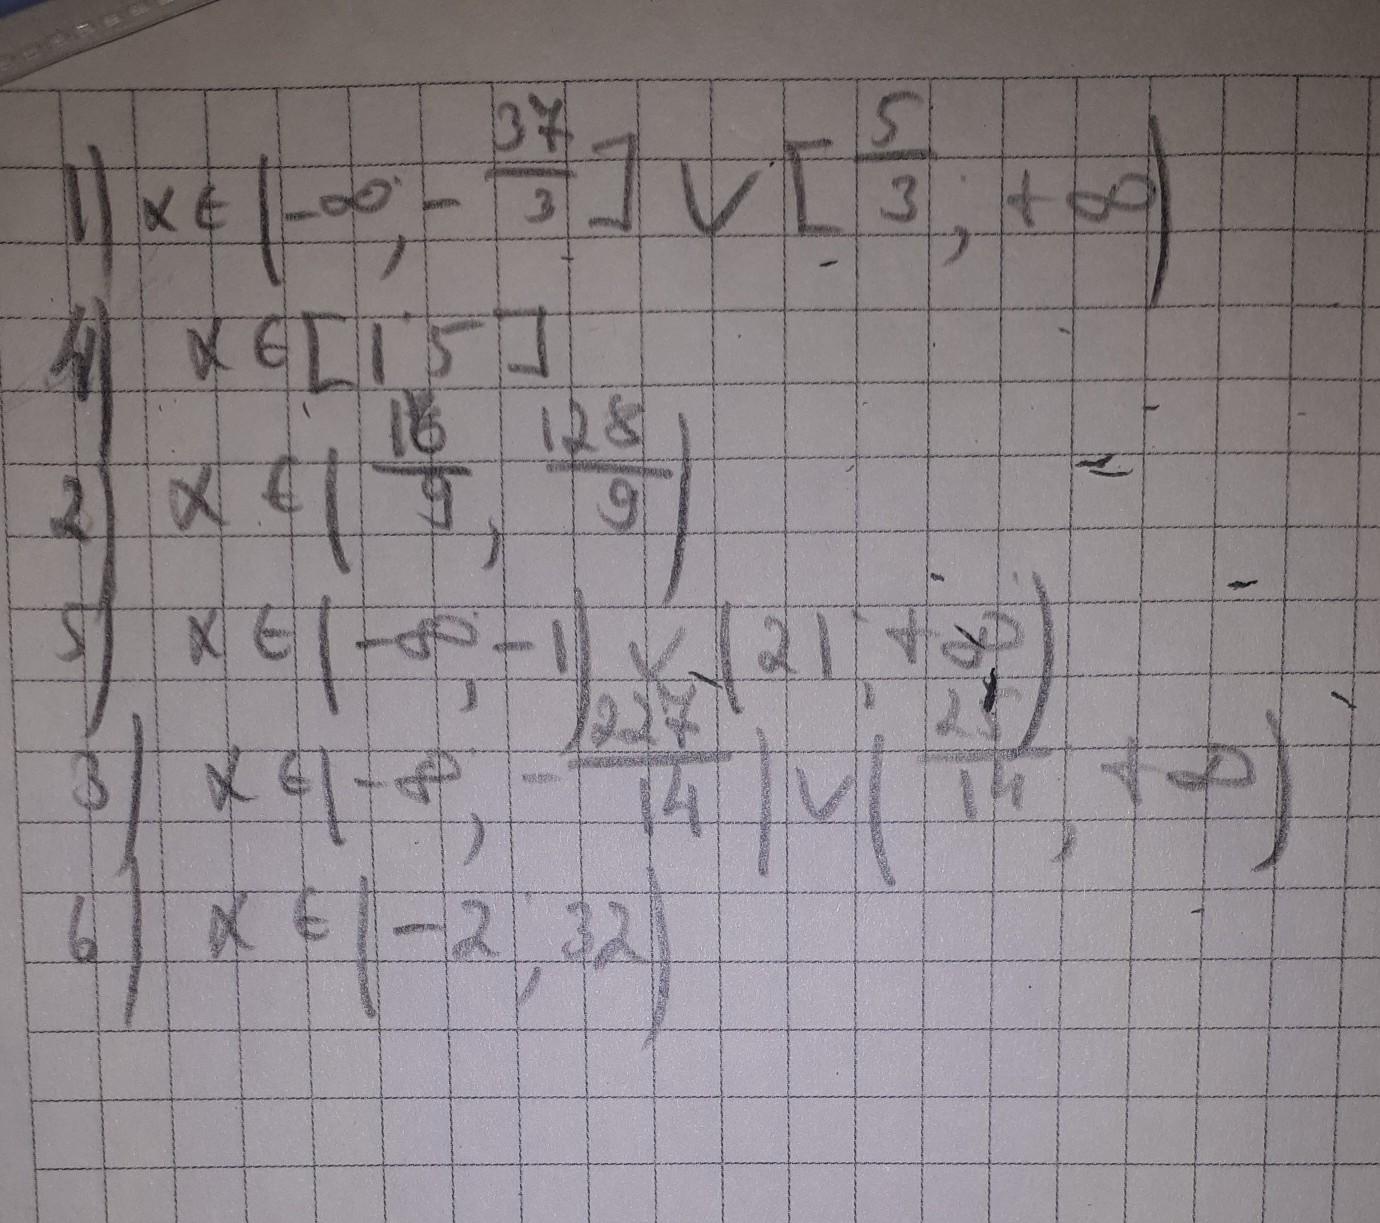 1) x ∈ (-∞; -37/3] ∨ [5/3; +∞)
4) x ∈ [1 5]
2) x ∈ (16/9, 128/9)
5) x ∈ (-∞; -1) ∨ (21; +∞)
3) x ∈ (-∞, -227/14) ∨ (25/14, +∞)
6) x ∈ (-2; 32)